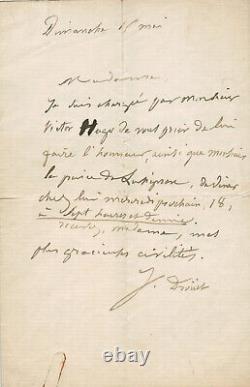 Dimanche 15 mai
Madame
Je suis chargée par Monsieur
Victor Hugo de vous prier de lui
faire l'honneur, ainsi que
le prince de Lusignan, de dîner
chez lui mercredi prochain, 18,
à sept heures et demie
recevez, madame, mes
plus gracieuses civilités.
J. Drouet